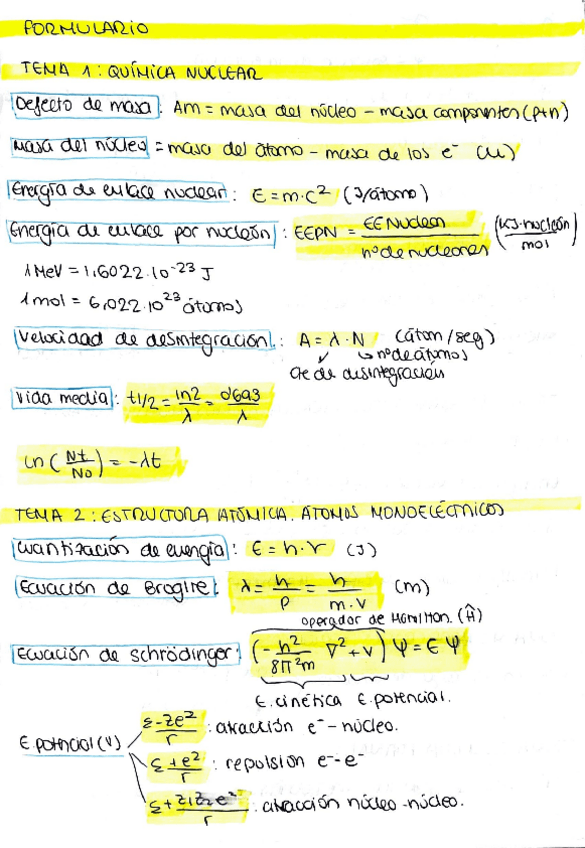 FORMULARIO
TEMA 1: QUÍMICA NUCLEAR
Defecto de masa: Am = masa del núcleo - masa componentes (p+n)
Masa del núcleo = masa del átomo - masa de los e⁻ (u)
Energía de enlace nuclear: E = m·c² (J/átomo)
Energía de enlace por nucleón: EEPN = EE Nuclear / nº de nucleones (KJ·nucleón / mol)
1 MeV = 1,6022·10⁻²³ J
1 mol = 6,022·10²³ átomos
Velocidad de desintegración: A = λ·N (átom/seg)
nº de átomos
Cte de desintegración
Vida media: t1/2 = ln2/λ = 0'693/λ
Ln (Nt/No) = -λt
TEMA 2: ESTRUCTURA ATÓMICA. ÁTOMOS MONOELÉCTNICOS
Cuantización de energía: E = h·ν (J)
Ecuación de Broglie: λ = h/p = h/m·v (m)
operador de Hamilton. (Ĥ)
Ecuación de Schrödinger: (-h²/8π²m ∇² + V) Ψ = E Ψ
E. cinética E. potencial.
Σ-Ze²/r : atracción e⁻ - núcleo.
E. potncial (V)
Σ+e²/r : repulsion e⁻-e⁻
Σ+Z₁Z₂e²/r : atracción núcleo-núcleo.